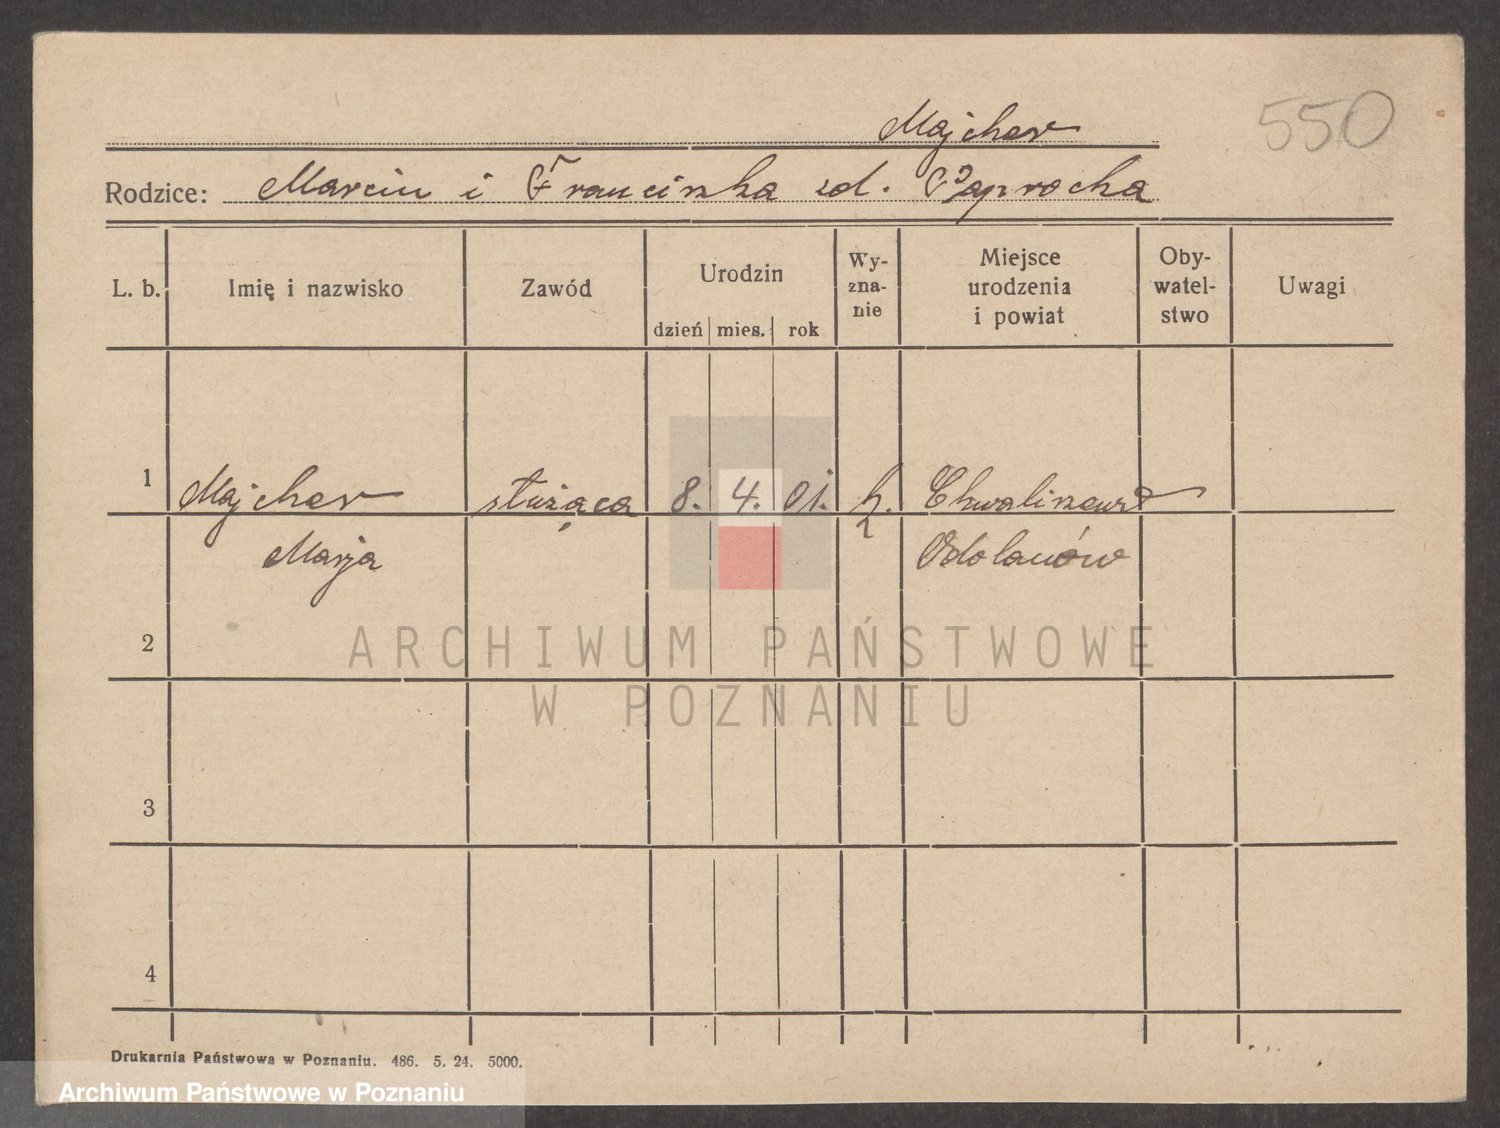 Majcher
550
Rodzice: Marcin i Franciszka zd. Paprocka
L. b. Imię i nazwisko Zawód Urodzin dzień mies. rok Wy-zna-nie Miejsce urodzenia i powiat Oby-watel-stwo Uwagi
1 Majcher służąca 8. 4. 01. k. Chwaliszew
Marja Odolanów
2
ARCHIWUM PAŃSTWOWE
W POZNANIU
3
4
Drukarnia Państwowa w Poznaniu. 486. 5. 24. 5000.
Archiwum Państwowe w Poznaniu